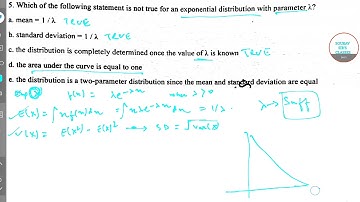 5. Which of the following statement is not true for an exponential distribution with parameter λ?
a. mean = 1 / λ TRUE
b. standard deviation = 1 / λ TRUE
c. the distribution is completely determined once the value of λ is known TRUE
d. the area under the curve is equal to one
e. the distribution is a two-parameter distribution since the mean and standard deviation are equal
f(x) = λe^-λx λ>0
λ → Suff
E(x) = ∫xf(x)dx = ∫xλe^-λx = 1/λ
V(x) = E(x²) - E(x)² → SD = √var(x)